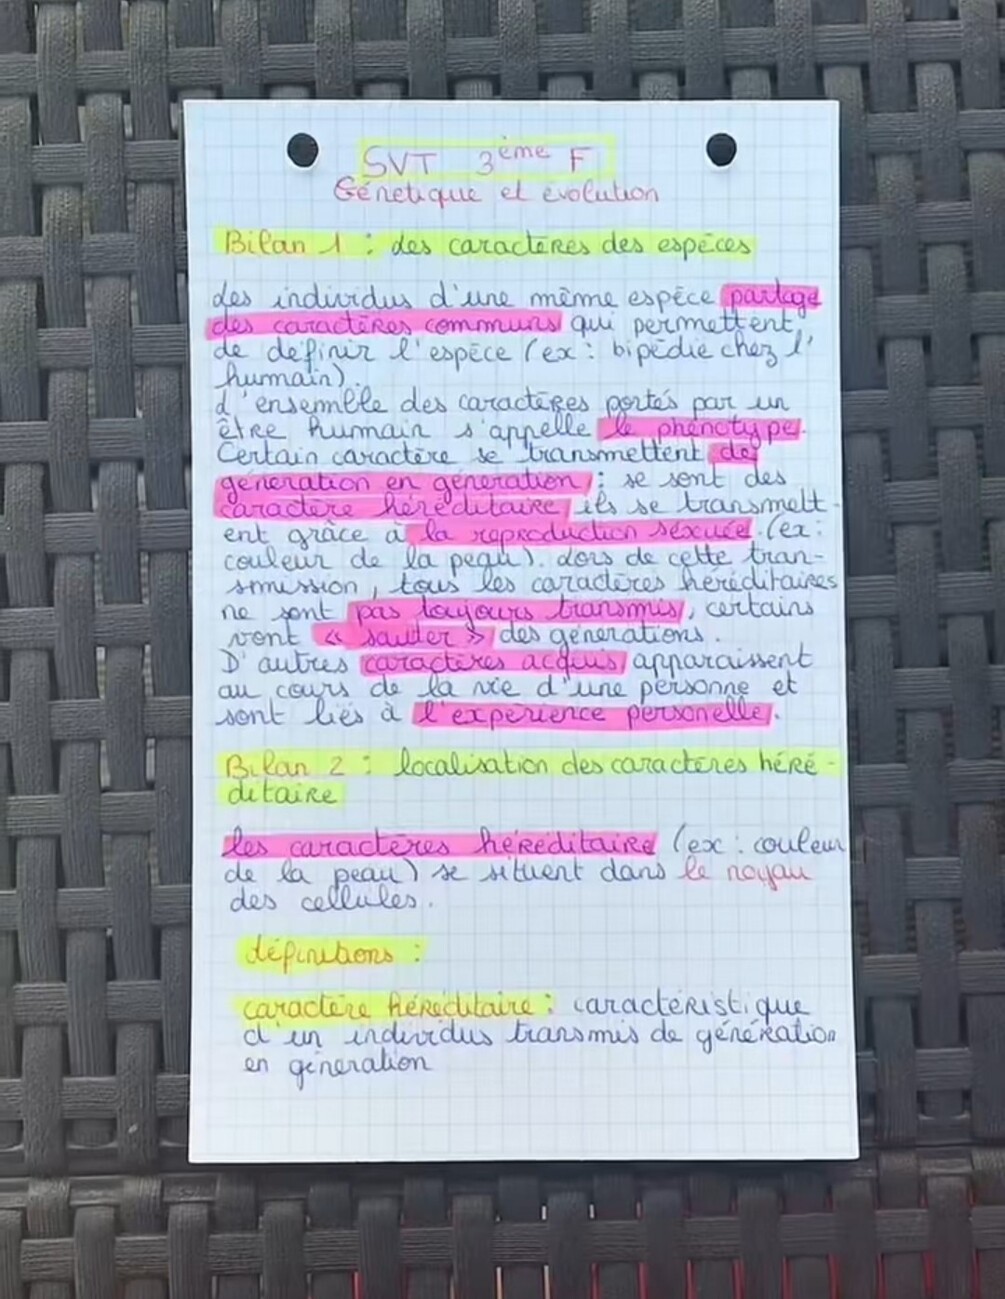 SVT 3ème F
Génétique et évolution
Bilan 1 : les caractères des espèces
Les individus d'une même espèce partage
des caractères communs qui permettent
de définir l'espèce (ex : bipédie chez l'
humain).
L'ensemble des caractères portés par un
être humain s'appelle le phénotype.
Certain caractère se transmettent de
génération en génération : se sont des
caractère héréditaire ils se transmett-
ent grâce à la reproduction sexuée. (ex :
couleur de la peau). Lors de cette tran-
smission, tous les caractères héréditaires
ne sont pas toujours transmis, certains
vont « sauter » des générations.
D'autres caractères acquis apparaissent
au cours de la vie d'une personne et
sont liés à l'expérience personelle.
Bilan 2 : localisation des caractères héré-
ditaire
Les caractères héréditaire (ex : couleur
de la peau) se situent dans le noyau
des cellules.
définitions :
caractère héréditaire : caractéristique
d'un individus transmis de génération
en génération